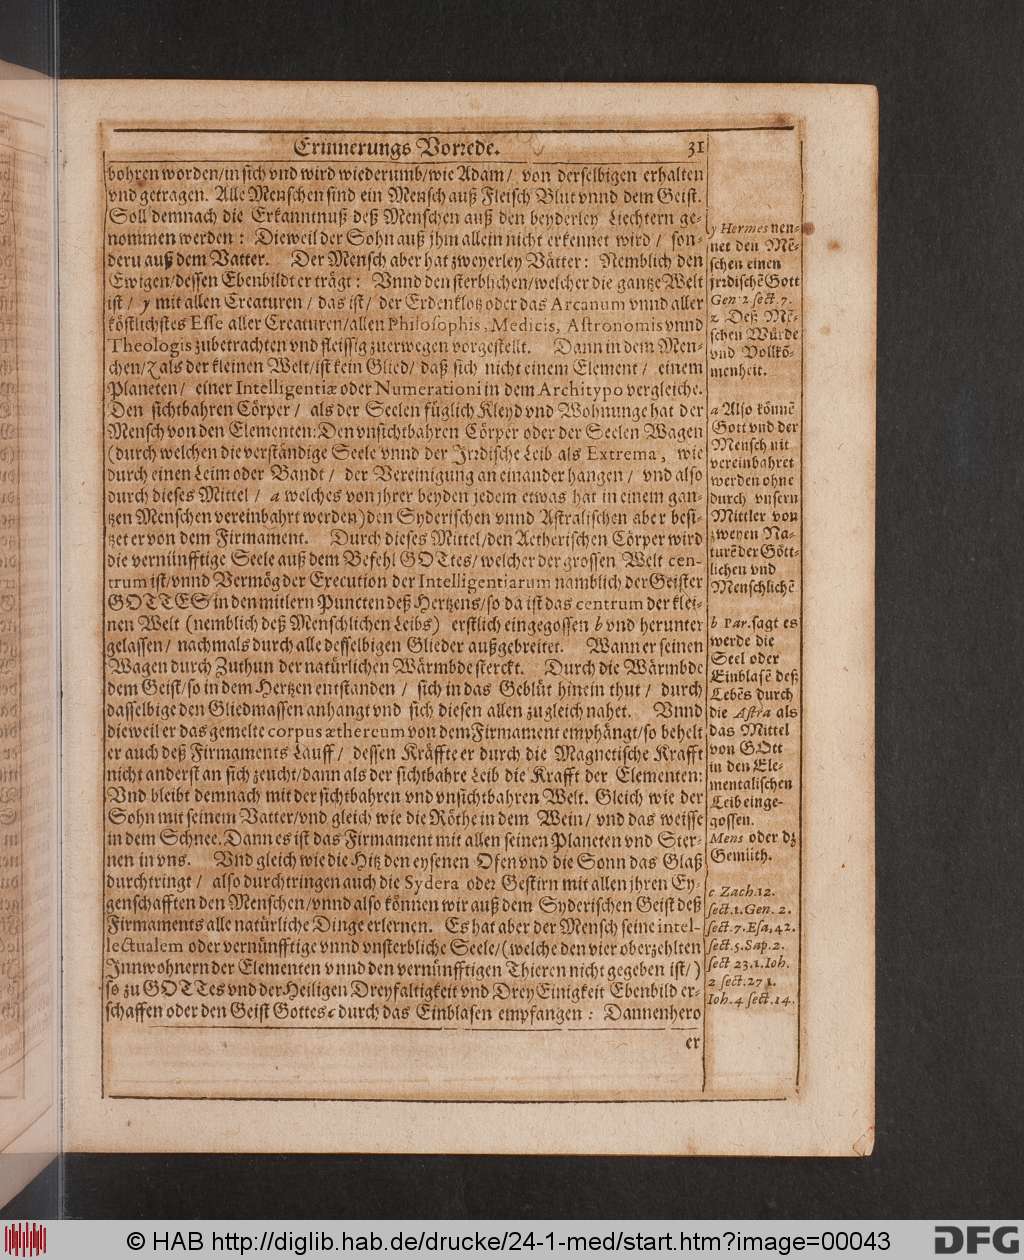 Erinnerungs Vorrede. 31
bohren worden/in sich vnd wird wiederumb/wie Adam/ von derselbigen erhalten
vnd getragen. Alle Menschen sind ein Mensch auß Fleisch Blut vnnd dem Geist.
Soll demnach die Erkanntnuß deß Menschen auß den beyderley Liechtern ge-
nommen werden: Dieweil der Sohn auß jhm allein nicht erkennet wird/ son-
dern auß dem Vatter. Der Mensch aber hat zweyerley Vätter: Nemblich den
Ewigen/dessen Ebenbildt er trägt: Vnnd den sterblichen/welcher die gantze Welt
ist/ y mit allen Creaturen/ das ist/ der Erdenklotz oder das Arcanum vnnd aller
köstlichstes Esse aller Creaturen/allen Philosophis, Medicis, Astronomis vnnd
Theologis zubetrachten vnd fleissig zuerwegen vorgestellt. Dann in dem Men-
chen/z als der kleinen Welt/ist kein Glied/ daß sich nicht einem Element/ einem
Planeten/ einer Intelligentiæ oder Numerationi in dem Architypo vergleiche.
Den sichtbahren Cörper/ als der Seelen füglich Kleyd vnd Wohnunge hat der
Mensch von den Elementen: Den vnsichtbahren Cörper oder der Seelen Wagen
(durch welchen die verständige Seele vnnd der Jrrdische Leib als Extrema, wie
durch einen Leim oder Bandt/ der Vereinigung an einander hangen/ vnd also
durch dieses Mittel/ a welches von jhrer beyden jedem etwas hat in einem gan-
tzen Menschen vereinbahrt werden) den Syderischen vnnd Astralischen aber besi-
tzet er von dem Firmament. Durch dieses Mittel/den Aetherischen Cörper wird
die vernünfftige Seele auß dem Befehl GOTtes/welcher der grossen Welt cen-
trum ist/vnnd Vermög der Execution der Intelligentiarum namblich der Geister
GOTTES in den mitlern Puncten deß Hertzens/so da ist das centrum der klei-
nen Welt (nemblich deß Menschlichen Leibs) erstlich eingegossen b vnd herunter
gelassen/ nachmals durch alle desselbigen Glieder außgebreitet. Wann er seinen
Wagen durch Zuthun der natürlichen Wärmbde sterckt. Durch die Wärmbde
dem Geist/so in dem Hertzen entstanden/ sich in das Geblüt hinein thut/ durch
dasselbige den Gliedmassen anhangt vnd sich diesen allen zugleich nahet. Vnnd
dieweil er das gemelte corpus æthereum von dem Firmament emphängt/so behelt
er auch deß Firmaments Lauff/ dessen Kräffte er durch die Magnetische Krafft
nicht anderst an sich zeucht/dann als der sichtbahre Leib die Krafft der Elementen:
Vnd bleibt demnach mit der sichtbahren vnd vnsichtbahren Welt. Gleich wie der
Sohn mit seinem Vatter/vnd gleich wie die Röthe in dem Wein/ vnd das weisse
in dem Schnee. Dann es ist das Firmament mit allen seinen Planeten vnd Ster-
nen in vns. Vnd gleich wie die Hitz den eysenen Ofen vnd die Sonn das Glaß
durchtringt/ also durchtringen auch die Sydera oder Gestirn mit allen jhren Ey-
genschafften den Menschen/vnnd also können wir auß dem Syderischen Geist deß
Firmaments alle natürliche Dinge erlernen. Es hat aber der Mensch seine intel-
lectualem oder vernünfftige vnnd vnsterbliche Seele/(welche den vier oberzehlten
Innwohnern der Elementen vnnd den vernünfftigen Thieren nicht gegeben ist/)
so zu GOTTes vnd der Heiligen Dreyfaltigkeit vnd Drey Einigkeit Ebenbild er-
schaffen oder den Geist Gottes c durch das Einblasen empfangen: Dannenhero
er
y Hermes nen-
net den Mẽ-
schen einen
jrrdischẽ Gott
Gen. 2 sect. 7.
z Deß Mẽ-
schen Würde
vnd Vollkõ-
menheit.
a Also könnẽ
Gott vnd der
Mensch nit
vereinbahret
werden ohne
durch vnsern
Mittler von
zweyen Na-
turẽ der Gött-
lichen vnd
Menschlichẽ
b Par. sagt es
werde die
Seel oder
Einblasẽ deß
Lebẽs durch
die Astra als
das Mittel
von GOtt
in den Ele-
mentalischen
Leib einge-
gossen.
Mens oder dz
Gemüth.
c Zach. 12.
sect. 1. Gen. 2.
sect. 7. Esa, 42.
sect. 5. Sap. 2.
sect 23. 1. Ioh.
2 sect. 27 1.
Ioh. 4 sect. 14.
© HAB http://diglib.hab.de/drucke/24-1-med/start.htm?image=00043
DFG